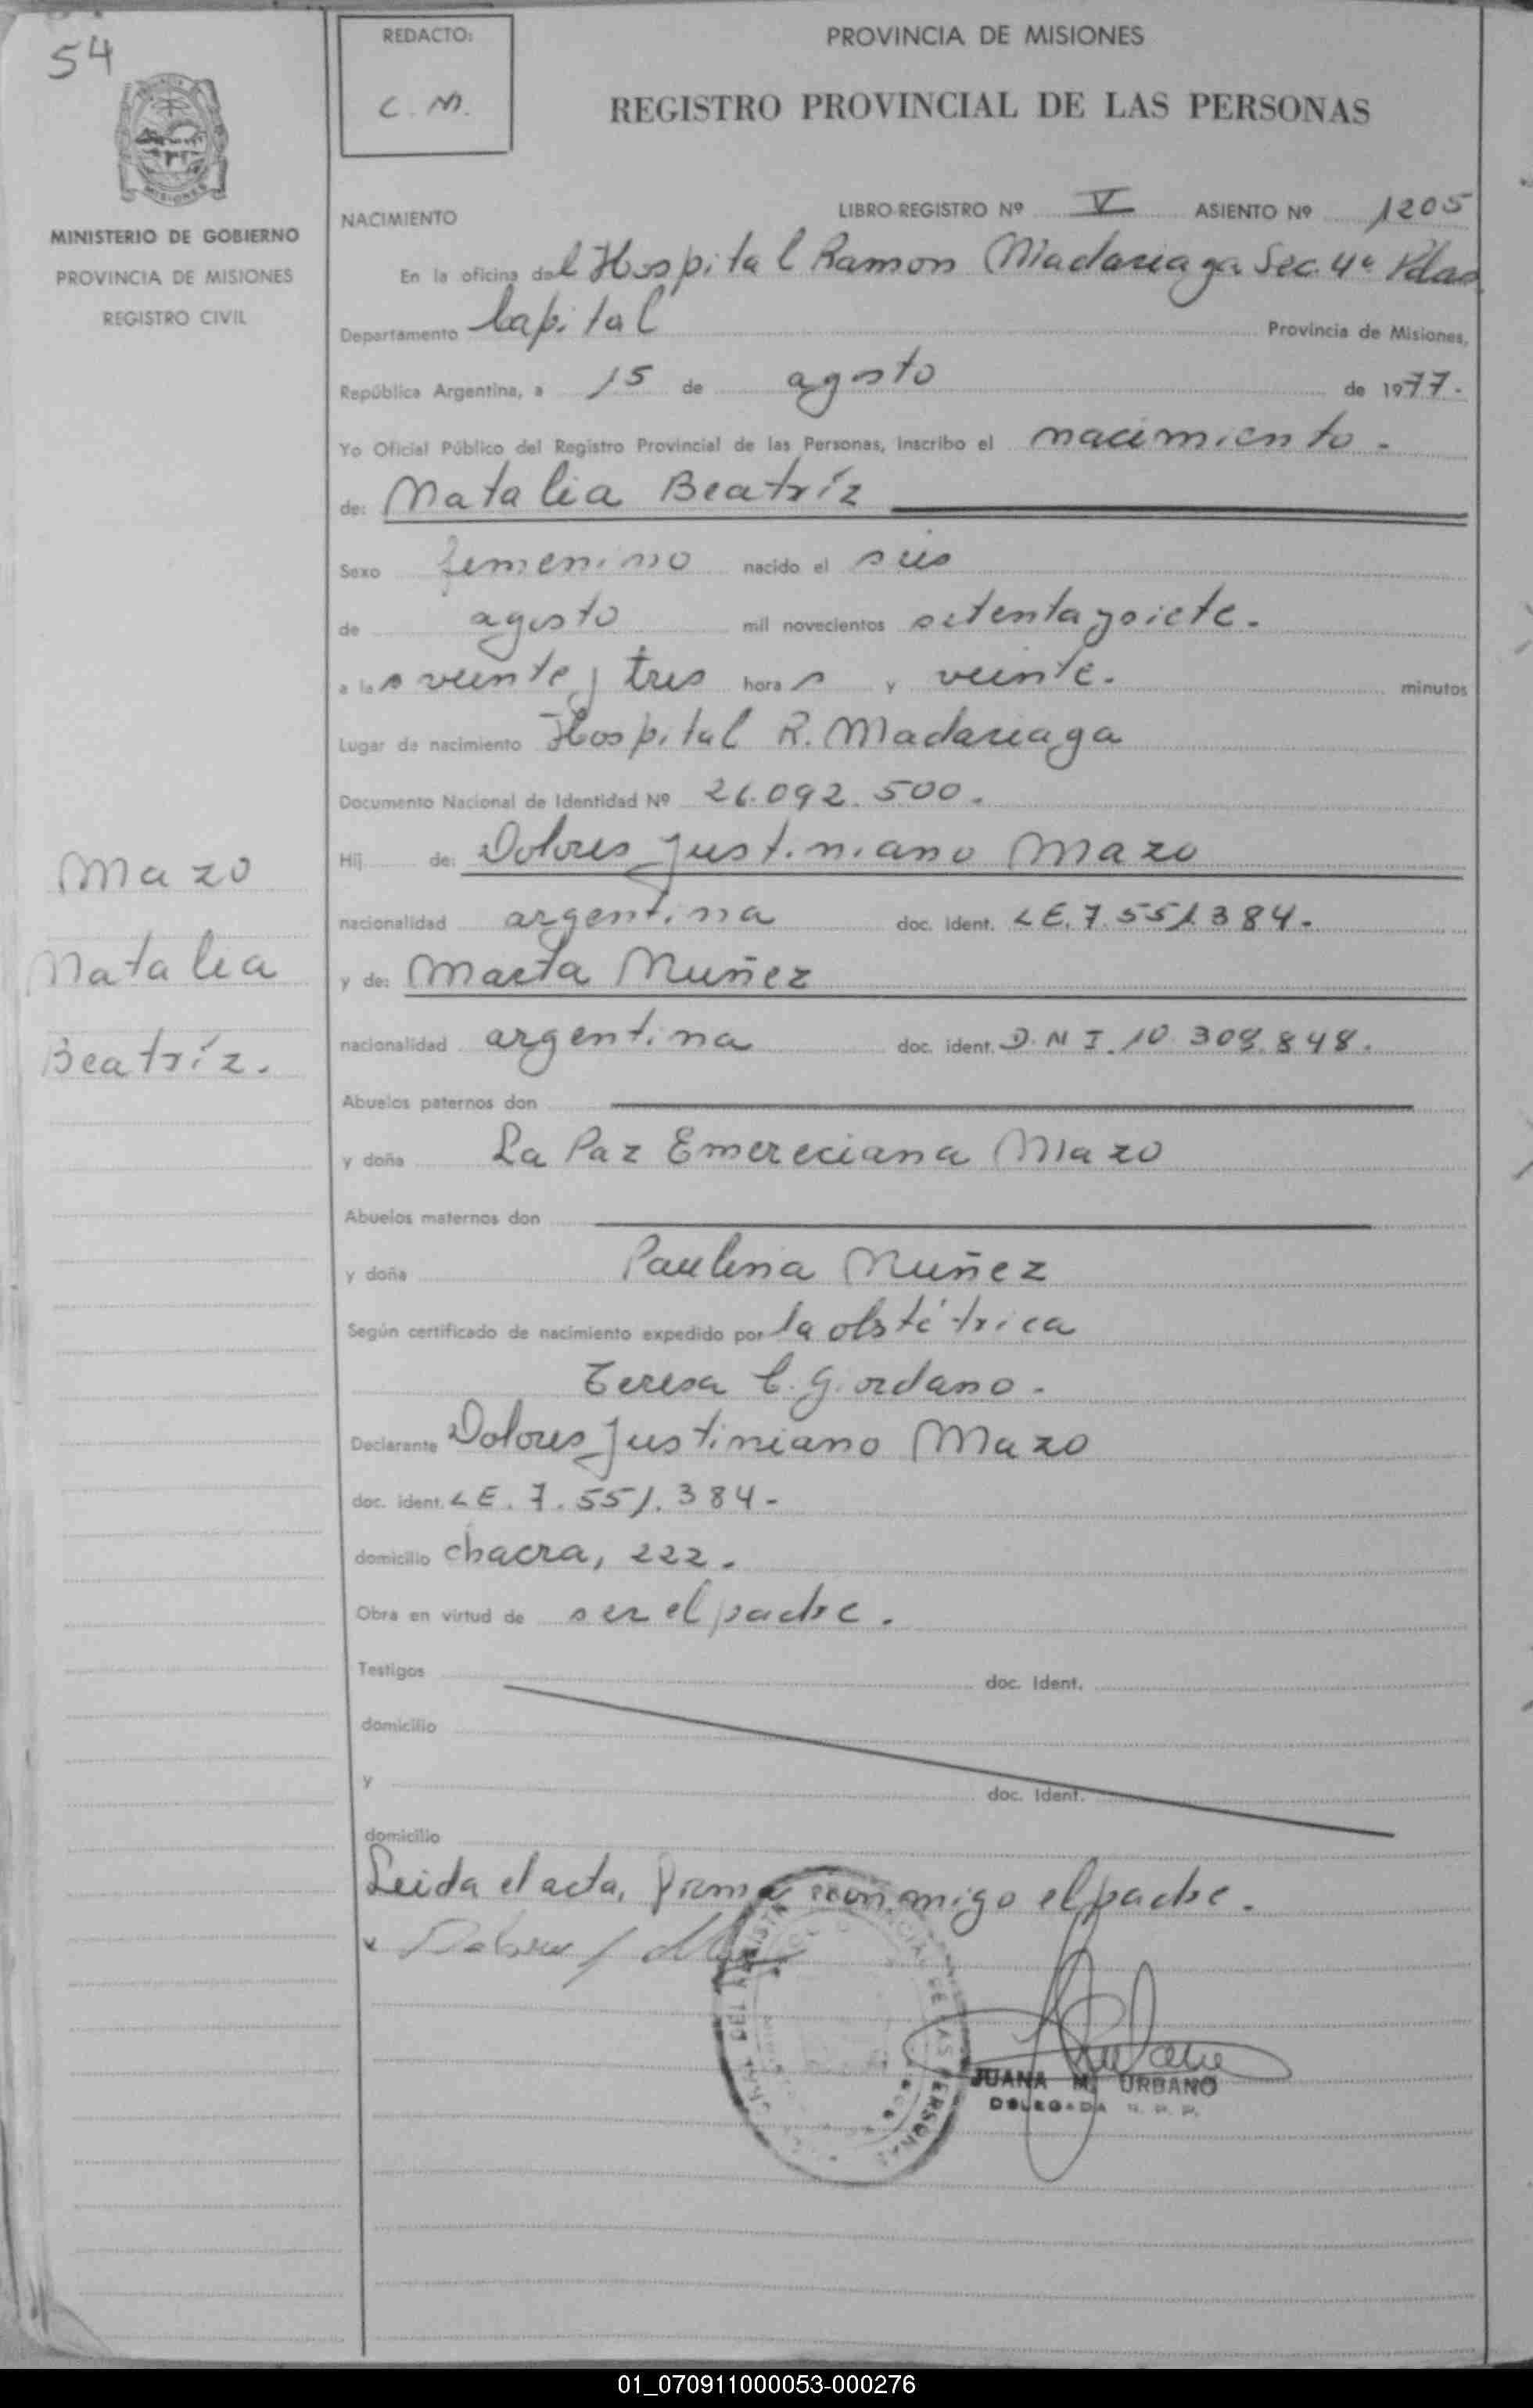 54
REDACTO:
C. M.
PROVINCIA DE MISIONES
REGISTRO PROVINCIAL DE LAS PERSONAS
MISIONES
MINISTERIO DE GOBIERNO
PROVINCIA DE MISIONES
REGISTRO CIVIL
NACIMIENTO
LIBRO-REGISTRO Nº V ASIENTO Nº 1205
En la oficina del Hospital Ramon Madariaga Sec. 4ª Pdas
Departamento Capital Provincia de Misiones,
República Argentina, a 15 de agosto de 1977.
Yo Oficial Público del Registro Provincial de las Personas, inscribo el nacimiento.
de: Natalia Beatríz
Sexo femenino nacido el seis
de agosto mil novecientos setentaysiete.
a las veinte y tres horas y veinte. minutos
Lugar de nacimiento Hospital R. Madariaga
Documento Nacional de Identidad Nº 26.092.500.
Hij de: Dolores Justiniano Mazo
nacionalidad argentina doc. ident. LE. 7.551.384.
y de: Marta Nuñez
nacionalidad argentina doc. ident. D.N I. 10.309.848.
Abuelos paternos don
y doña La Paz Emereciana Mazo
Abuelos maternos don
y doña Paulina Nuñez
Según certificado de nacimiento expedido por la obstétrica
Teresa C. Giordano.
Declarante Dolores Justiniano Mazo
doc. ident. LE. 7.551.384-
domicilio chacra, 222.
Obra en virtud de ser el padre.
Testigos doc. Ident.
domicilio
y doc. Ident.
domicilio
Leida el acta, firma conmigo el padre.
Mazo
Natalia
Beatríz.
JUANA M. URBANO
DELEGADA R. P. P.
01_070911000053-000276